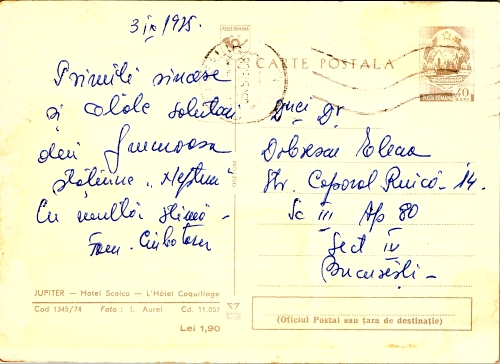 3 IX 1975.
Primiți sincere
și calde salutări
din frumoasa
stațiune "Neptun"
Cu multă stimă -
Fam. Ciubotaru
JUPITER — Hotel Scoica — L'Hôtel Coquillage
Cod 1345/74 Foto: I. Aurel Cd. 11.057
Lei 1,90
POSTA ROMANA
CARTE POSTALA
POSTA ROMANA 40
D-nei Dr
Dobrescu Elena
Str. Caporal Ruică - 14.
Sc III Ap 80
Sect IV
București -
(Oficiul Postal sau țara de destinație)